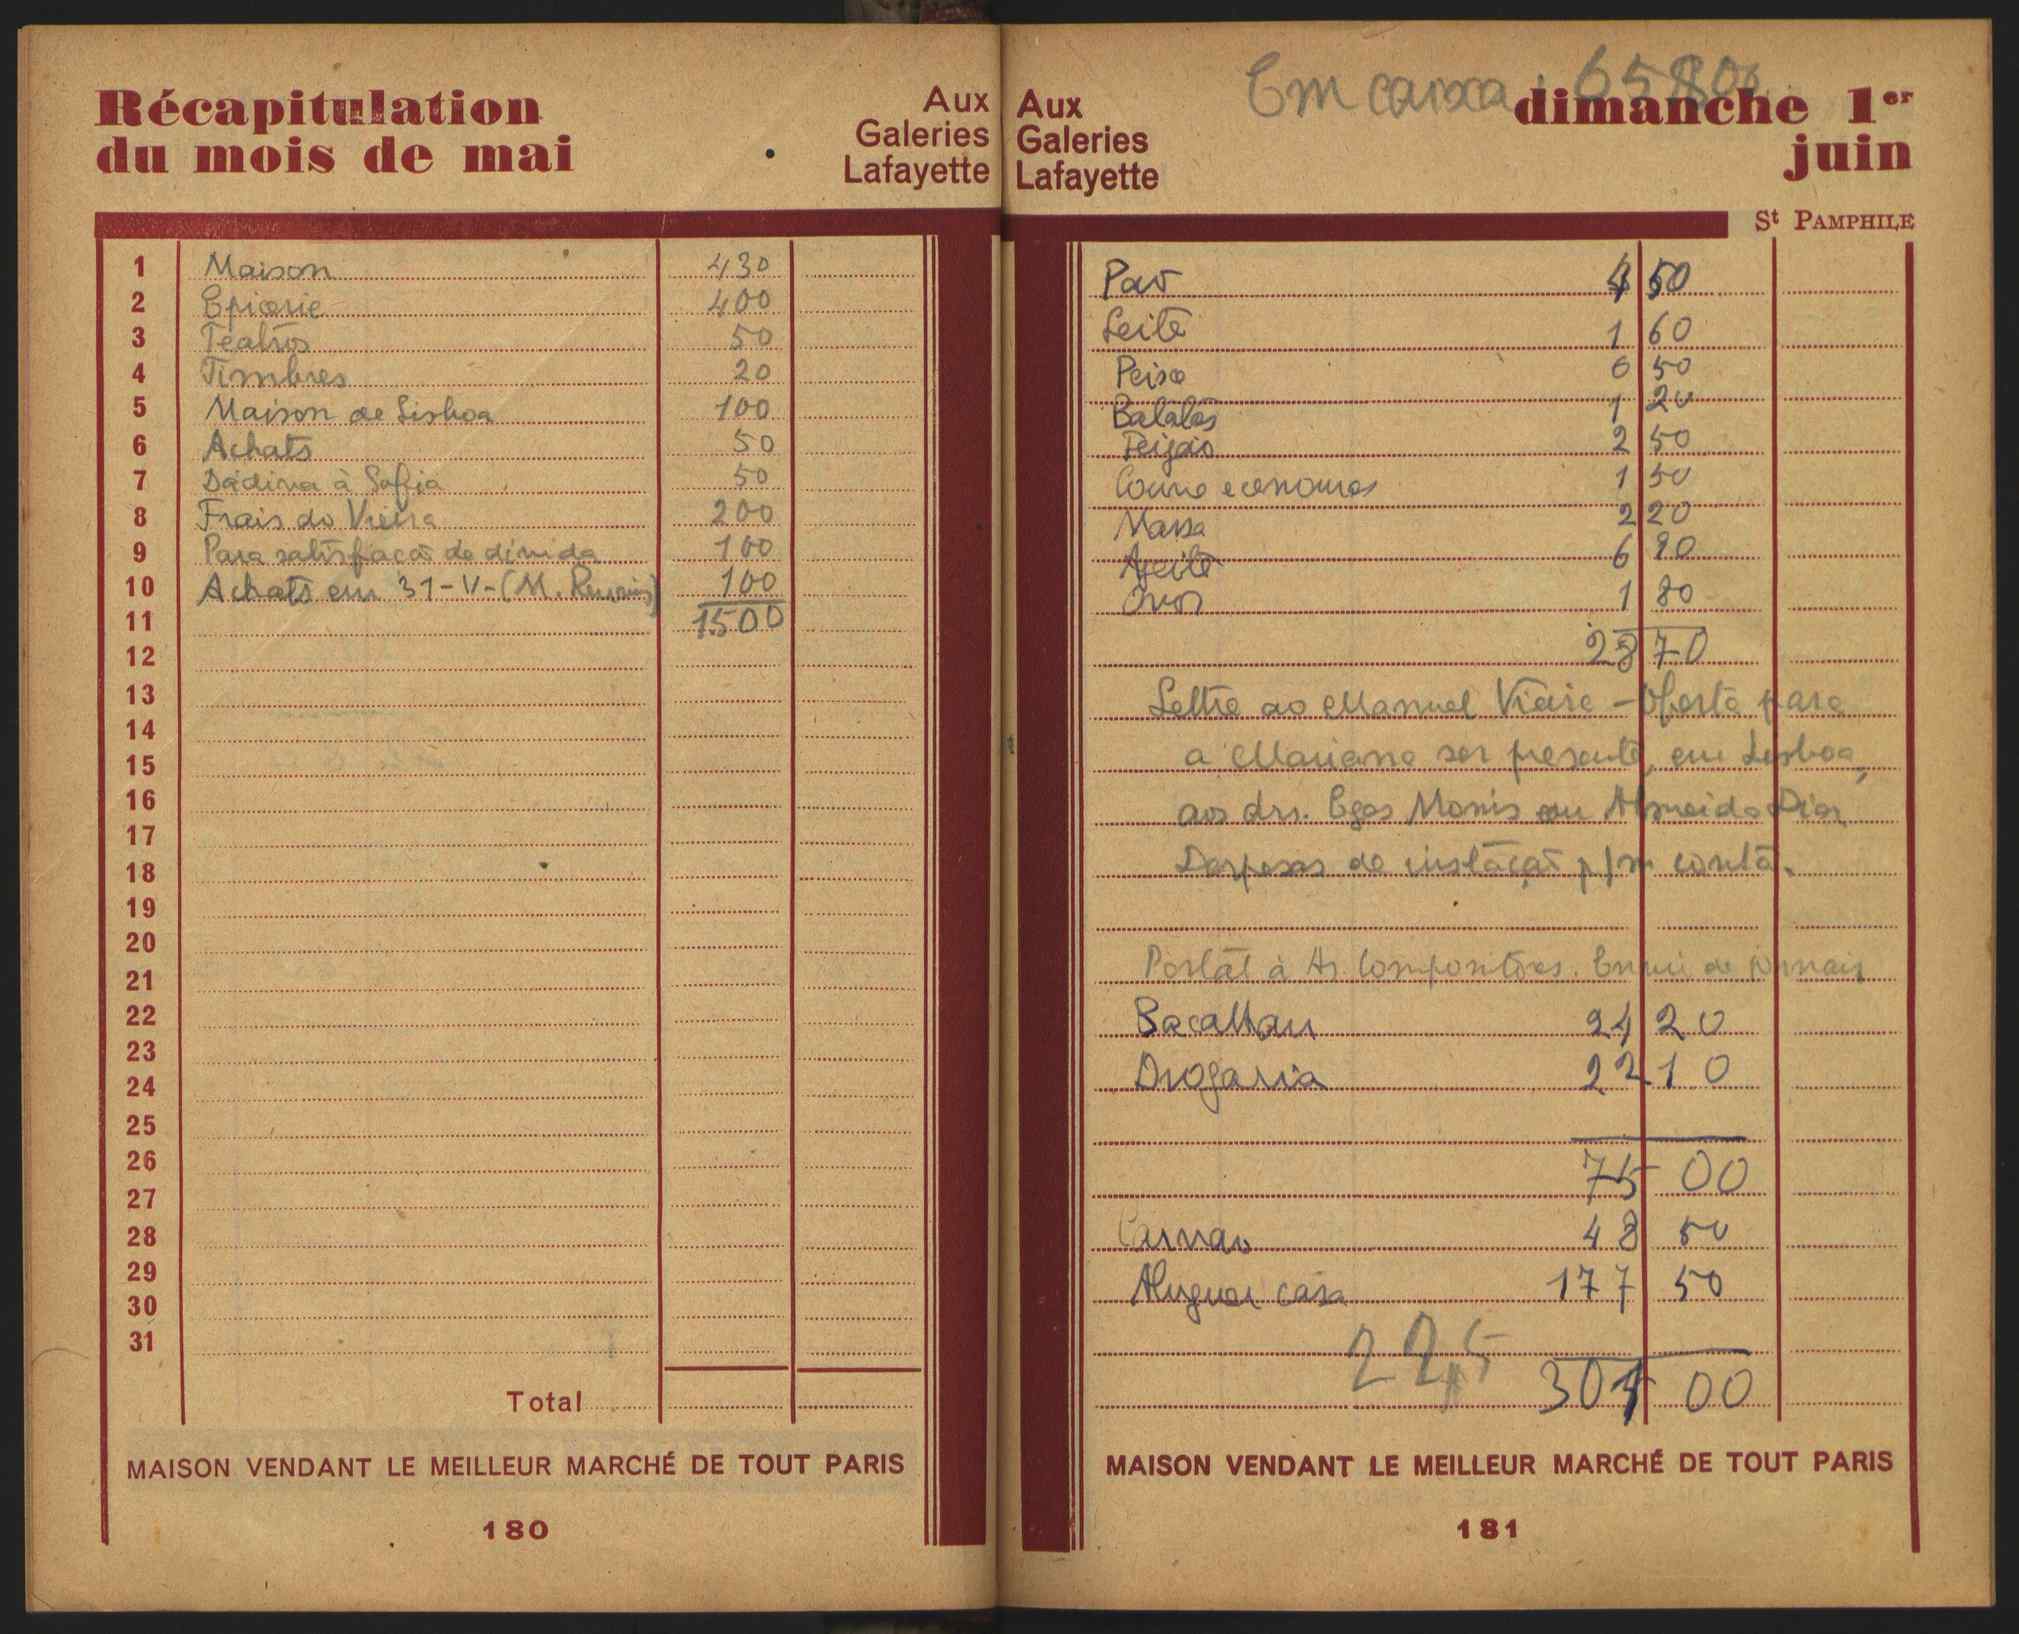 Récapitulation
du mois de mai
Aux
Galeries
Lafayette
1 Maison 430
2 Epicerie 400
3 Teatros 50
4 Timbres 20
5 Maison de Lisboa 100
6 Achats 50
7 Dádiva à Sofia 50
8 Frais do Vieira 200
9 Para satisfação de dívida 100
10 Achats em 31-V-(M. 100
11 1500
12
13
14
15
16
17
18
19
20
21
22
23
24
25
26
27
28
29
30
31
Total
MAISON VENDANT LE MEILLEUR MARCHÉ DE TOUT PARIS
180
Aux
Galeries
Lafayette
Em caixa
dimanche 1er
juin
St PAMPHILE
Pão 4 50
Leite 1 60
Peixe 6 50
Batatas 1 20
Feijão 2 50
Couve e cenouras 1 50
Massa 2 20
Azeite 6 90
Ovos 1 80
28 70
Lettre ao Manuel Vieira - Oferta para
a Mariana ser presente, em Lisboa,
aos drs. Egas Moniz ou Almeida Dias
Despesas de p/m conta.
Postal à As. Compositores. Envio de jornais
Bacalhau 24 20
Drogaria 22 10
75 00
Carvão 48 50
Aluguer casa 177 50
225
301 00
MAISON VENDANT LE MEILLEUR MARCHÉ DE TOUT PARIS
181